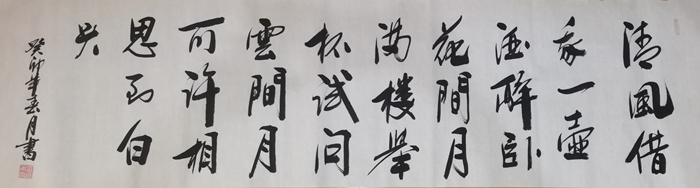 清風借
我一壺
酒醉臥
花間月
满樓舉
杯試問
雲間月
可許相
思到白
头
癸卯年春月書